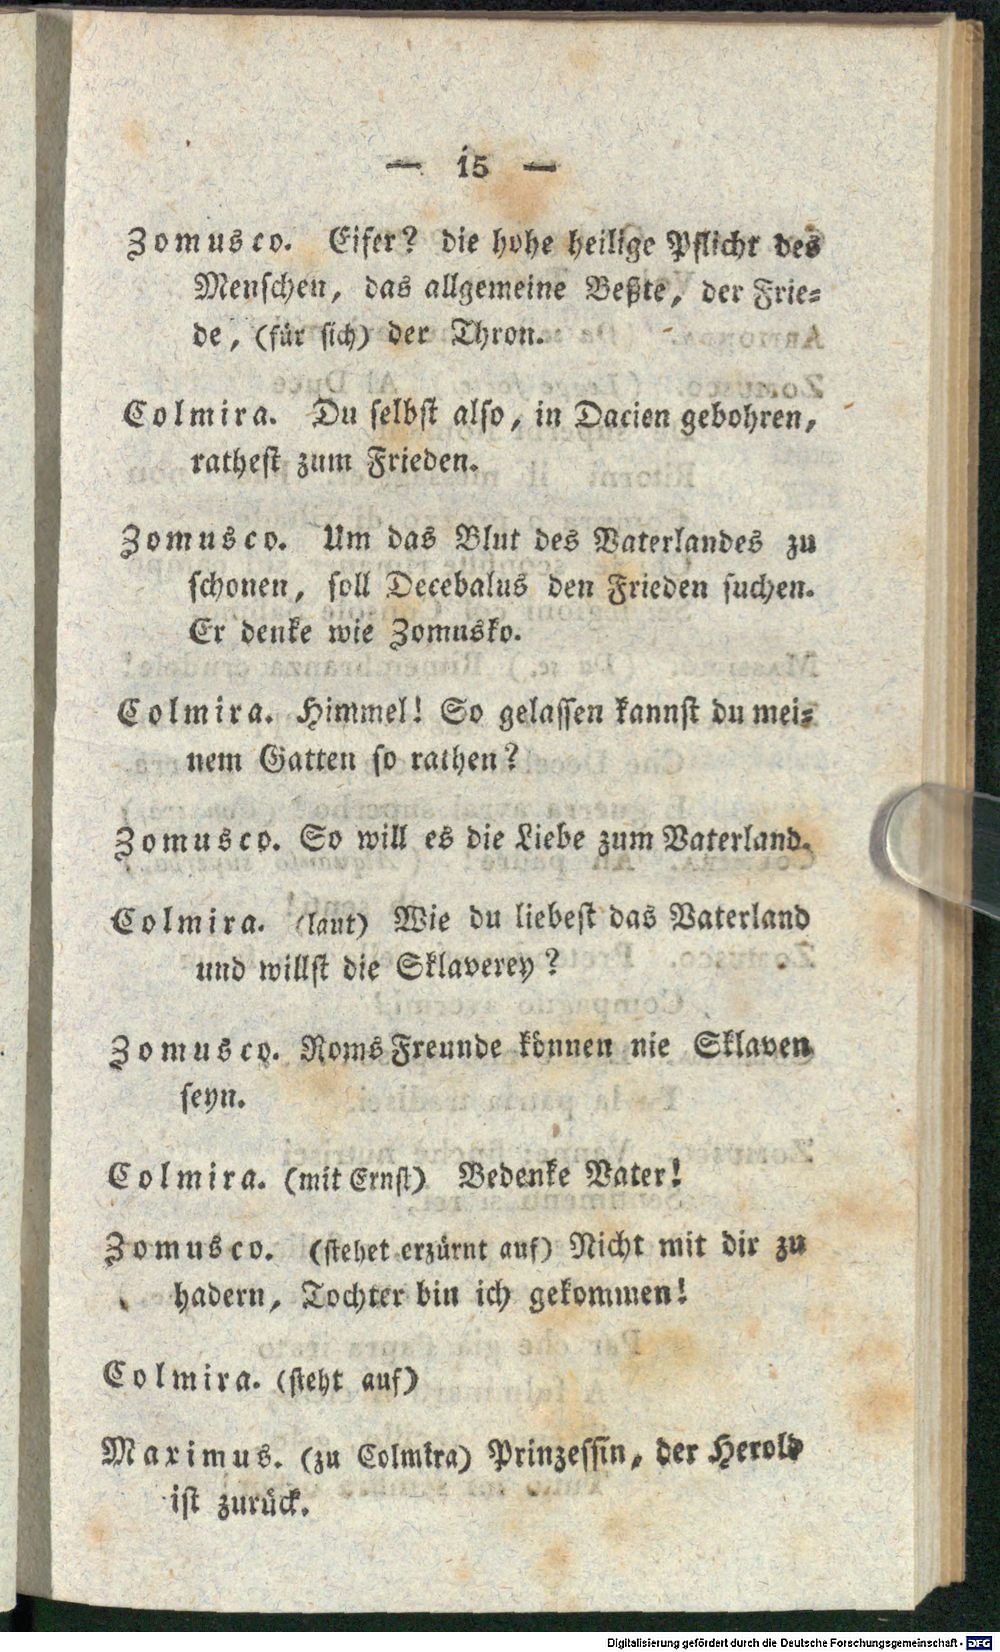 — 15 —
Zomusco. Eifer? die hohe heilige Pflicht des
Menschen, das allgemeine Beßte, der Frie-
de, (für sich) der Thron.
Colmira. Du selbst also, in Dacien gebohren,
rathest zum Frieden.
Zomusco. Um das Blut des Vaterlandes zu
schonen, soll Decebalus den Frieden suchen.
Er denke wie Zomusko.
Colmira. Himmel! So gelassen kannst du mei-
nem Gatten so rathen?
Zomusco. So will es die Liebe zum Vaterland.
Colmira. (laut) Wie du liebest das Vaterland
und willst die Sklaverey?
Zomusco. Roms Freunde können nie Sklaven
seyn.
Colmira. (mit Ernst) Bedenke Vater!
Zomusco. (stehet erzürnt auf) Nicht mit dir zu
hadern, Tochter bin ich gekommen!
Colmira. (steht auf)
Maximus. (zu Colmira) Prinzessin, der Herold
ist zurück.
Digitalisierung gefördert durch die Deutsche Forschungsgemeinschaft - DFG